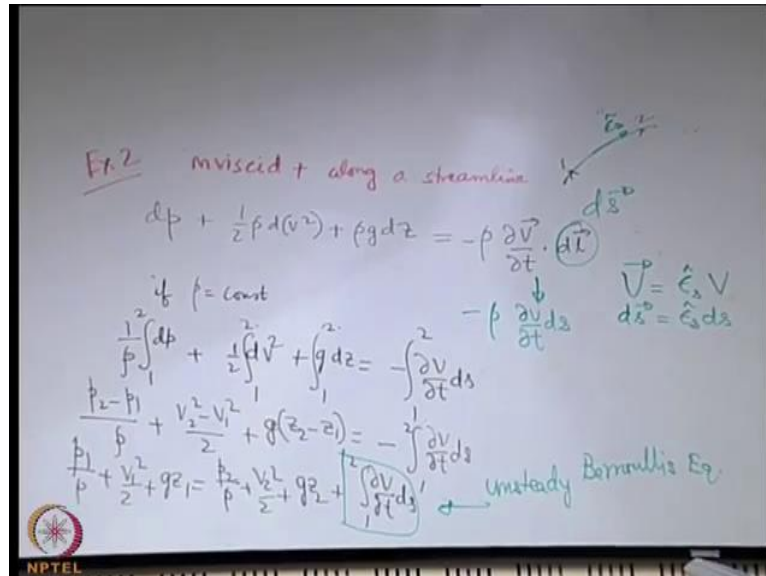 Ex.2 inviscid + along a streamline
1
2
ε̂s
ds⃗
dp + 1/2 ρ d(v²) + ρg dz = -ρ ∂V⃗/∂t · dl⃗
if ρ = const
-ρ ∂v/∂t ds
V⃗ = ε̂s V
ds⃗ = ε̂s ds
1/ρ ∫₁² dp + 1/2 ∫₁² dv² + ∫₁² g dz = -∫₁² ∂v/∂t ds
(p₂-p₁)/ρ + (v₂²-v₁²)/2 + g(z₂-z₁) = -∫₁² ∂v/∂t ds
p₁/ρ + v₁²/2 + gz₁ = p₂/ρ + v₂²/2 + gz₂ + ∫₁² ∂v/∂t ds ← Unsteady Bernoullis Eq.
NPTEL